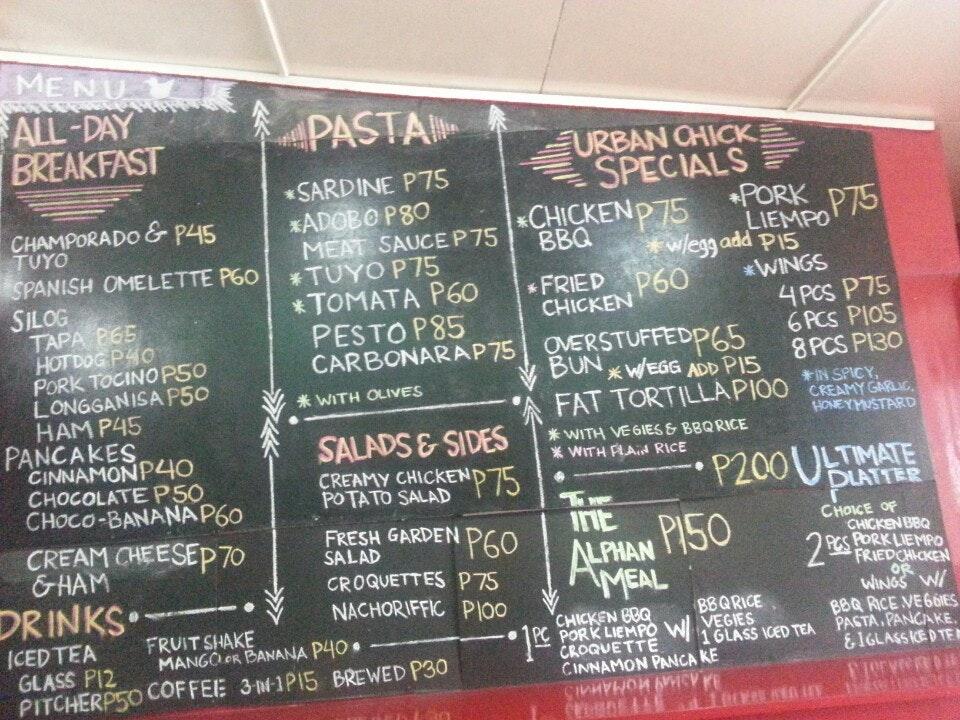 MENU
ALL-DAY
BREAKFAST
CHAMPORADO & P45
TUYO
SPANISH OMELETTE P60
SILOG
TAPA P65
HOTDOG P40
PORK TOCINO P50
LONGGANISA P50
HAM P45
PANCAKES
CINNAMON P40
CHOCOLATE P50
CHOCO-BANANA P60
CREAM CHEESE P70
& HAM
DRINKS
ICED TEA
GLASS P12
PITCHER P50
FRUIT SHAKE
MANGO OR BANANA P40
COFFEE 3-IN-1 P15 BREWED P30
PASTA
*SARDINE P75
*ADOBO P80
MEAT SAUCE P75
*TUYO P75
*TOMATA P60
PESTO P85
CARBONARA P75
* WITH OLIVES
SALADS & SIDES
CREAMY CHICKEN P75
POTATO SALAD
FRESH GARDEN P60
SALAD
CROQUETTES P75
NACHORIFFIC P100
URBAN CHICK
SPECIALS
*CHICKEN P75
BBQ
*PORK P75
LIEMPO
* w/egg add P15
*FRIED P60
CHICKEN
*WINGS
4 PCS P75
6 PCS P105
8 PCS P130
*IN SPICY,
CREAMY GARLIC,
HONEY MUSTARD
OVERSTUFFED P65
BUN * W/EGG ADD P15
FAT TORTILLA P100
* WITH VEGIES & BBQ RICE
* WITH PLAIN RICE
THE P150
ALPHAN
MEAL
1 PC CHICKEN BBQ
PORK LIEMPO W/
CROQUETTE
CINNAMON PANCAKE
BBQ RICE
VEGIES
1 GLASS ICED TEA
P200 ULTIMATE
PLATTER
CHOICE OF
2 PCS CHICKEN BBQ
PORK LIEMPO
FRIED CHICKEN
OR
WINGS W/
BBQ RICE, VEGGIES
PASTA, PANCAKE,
& 1 GLASS ICED TEA